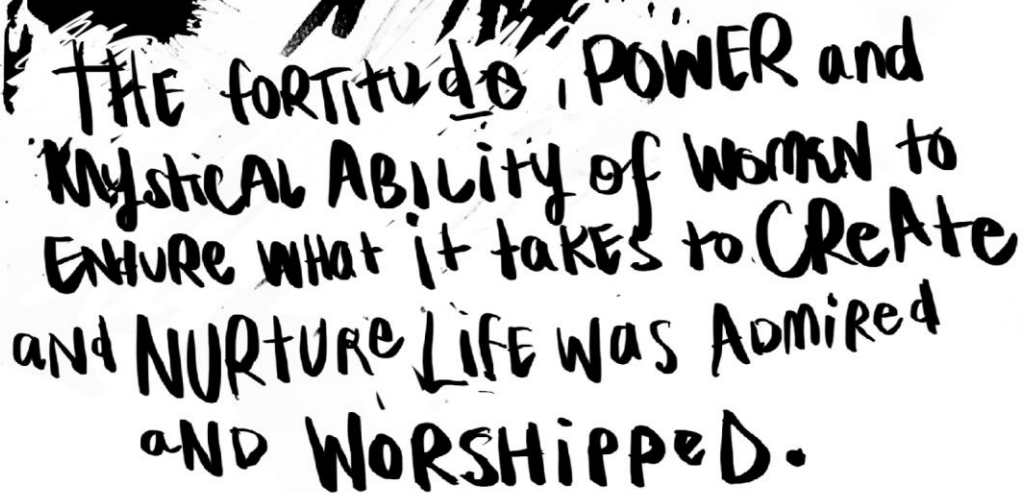 THE fORTiTude, POWER and
MystiCAL ABiLiTy of WomEN to
ENdURe WHat it takES to CReAte
aNd NURtURe LiFE WaS ADmiRed
aND WORSHiPPeD.